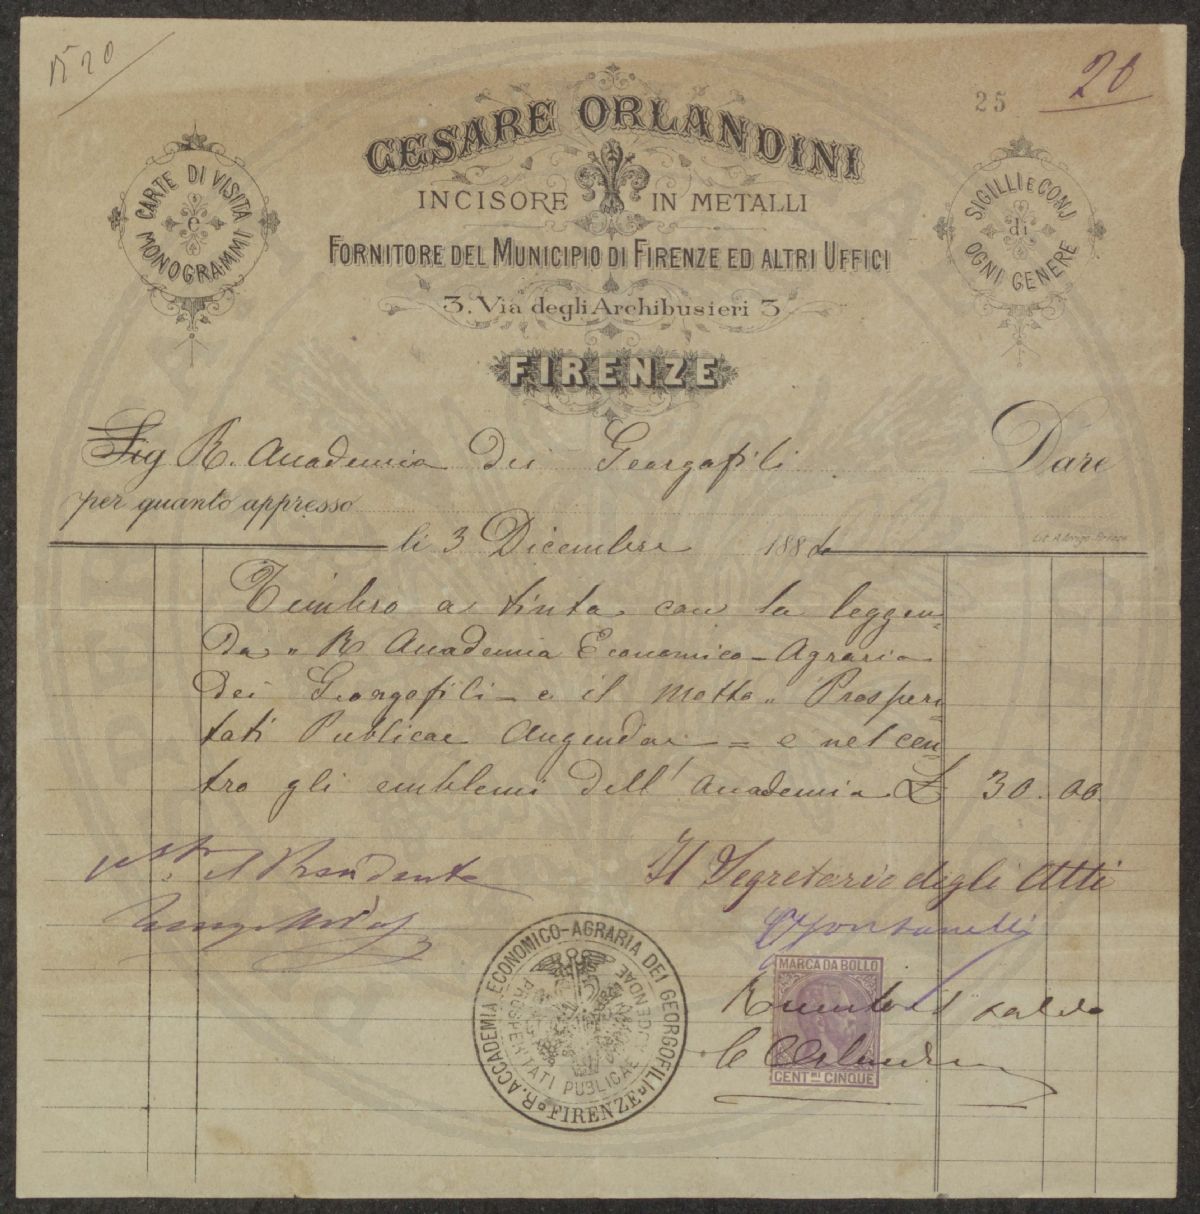 N 20
25
20
CESARE ORLANDINI
INCISORE IN METALLI
FORNITORE DEL MUNICIPIO DI FIRENZE ED ALTRI UFFICI
3. Via degli Archibusieri 3
FIRENZE
CARTE DI VISITA
e
MONOGRAMMI
SIGILLI E CONJ
di
OGNI GENERE
Sig R. Accademia dei Georgofili Dare
per quanto appresso
li 3 Dicembre 188
Lit. A. Arrigo Firenze
Timbro a tinta con la leggen-
da „ R Accademia Economico - Agraria
dei Georgofili - e il motto „ Prosperi-
tati Publicae Augendae = e nel cen-
tro gli emblemi dell' Accademia £ 30.00.
Vto. il Presidente
Il Segretario degli Atti
C Fontanelli
R. ACCADEMIA ECONOMICO-AGRARIA DEI GEORGOFILI
FIRENZE
PROSPERITATI PUBLICAE AUGENDAE
MARCA DA BOLLO
CENT.mi CINQUE
a saldo
C Orlandini